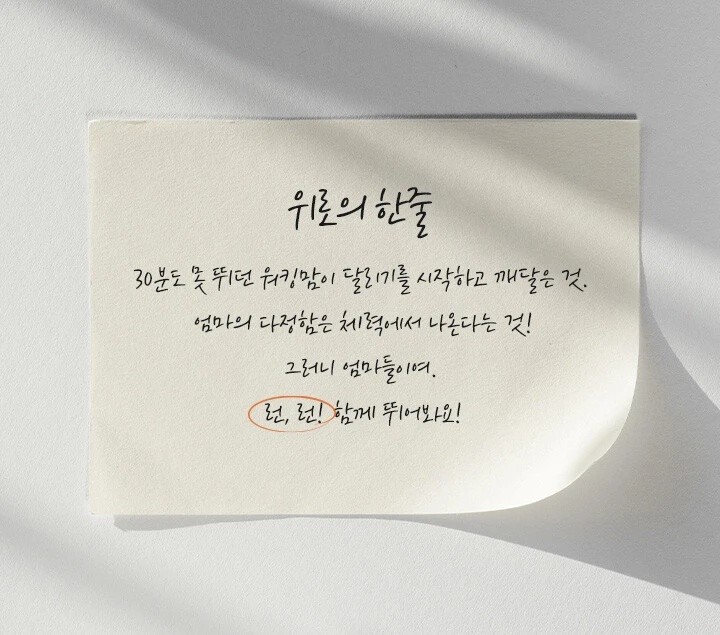 위로의 한줄
30분도 못 뛰던 워킹맘이 달리기를 시작하고 깨달은 것.
엄마의 다정함은 체력에서 나온다는 것!
그러니 엄마들이여.
런, 런! 함께 뛰어봐요!